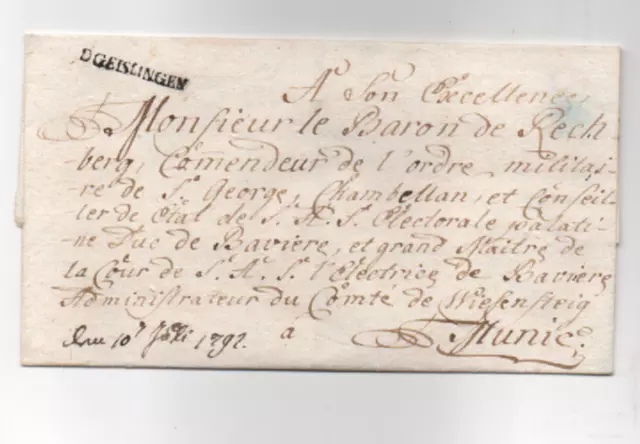 D'GEISLINGEN
A Son Excellence,
Monsieur le Baron de Rech
-berg, Comendeur de l'ordre militai-
-re de St. George, Chambellan, et Conseil-
ler de Etat de S. A. S. Electorale palati-
-ne Duc de Baviere, et grand Maitre de
la Cour de S. A. S. l'Electrice de Baviere
Administrateur du Comté de Wiesensteig
a Munic.
10 1792.